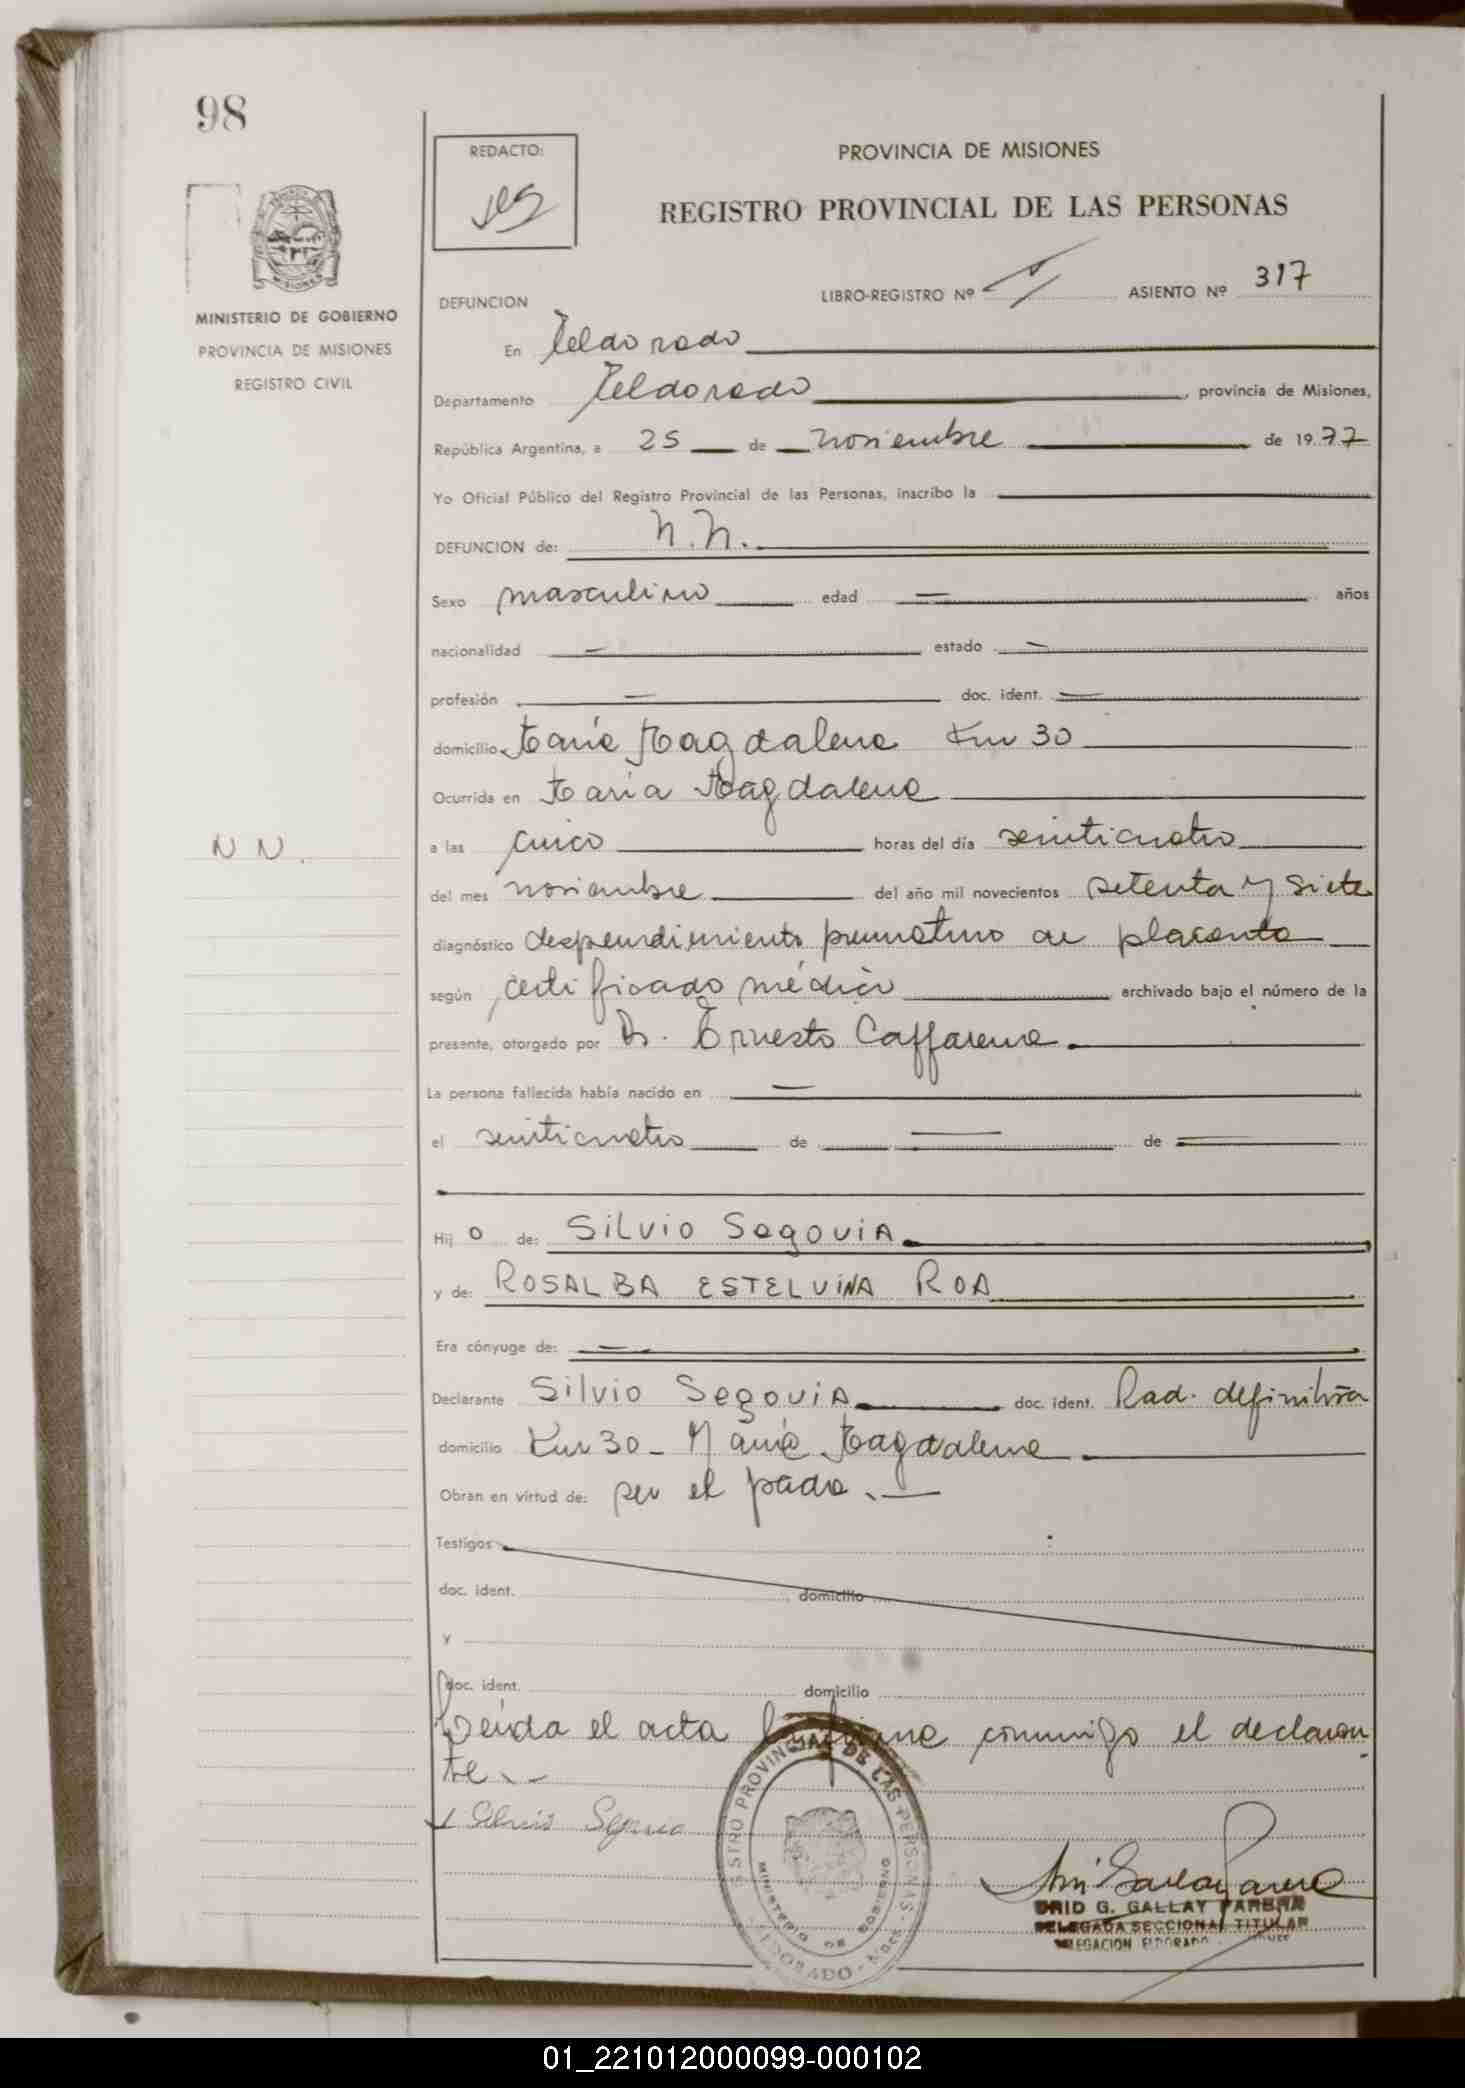 98
REDACTO:
PROVINCIA DE MISIONES
REGISTRO PROVINCIAL DE LAS PERSONAS
MINISTERIO DE GOBIERNO
PROVINCIA DE MISIONES
REGISTRO CIVIL
DEFUNCION
LIBRO-REGISTRO Nº ASIENTO Nº 317
En Eldorado
Departamento Eldorado, provincia de Misiones,
República Argentina, a 25 de noviembre de 19.77
Yo Oficial Público del Registro Provincial de las Personas, inscribo la
DEFUNCION de: N.N.
Sexo masculino edad años
nacionalidad estado
profesión doc. ident.
domicilio María Magdalena Km 30
Ocurrida en María Magdalena
N N.
a las cinco horas del día veinticuatro
del mes noviembre del año mil novecientos setenta y siete
diagnóstico desprendimiento prematuro de placenta
según certificado médico archivado bajo el número de la
presente, otorgado por Dr. Ernesto Caffarena
La persona fallecida había nacido en
el veinticuatro de de
Hijo de: Silvio Segovia
y de: ROSALBA ESTELVINA ROA
Era cónyuge de:
Declarante Silvio Segovia doc. ident. Rad. definitiva
domicilio Km 30 - María Magdalena
Obran en virtud de: ser el padre.
Testigos
doc. ident. domicilio
y
doc. ident. domicilio
Leída el acta la firma conmigo el declaran
te.
Silvio Segovia
REGISTRO PROVINCIAL DE LAS PERSONAS
MINISTERIO DE GOBIERNO
ELDORADO - Mnes
G. GALLAY PARERA
DELEGADA SECCIONAL TITULAR
DELEGACION ELDORADO
01_221012000099-000102